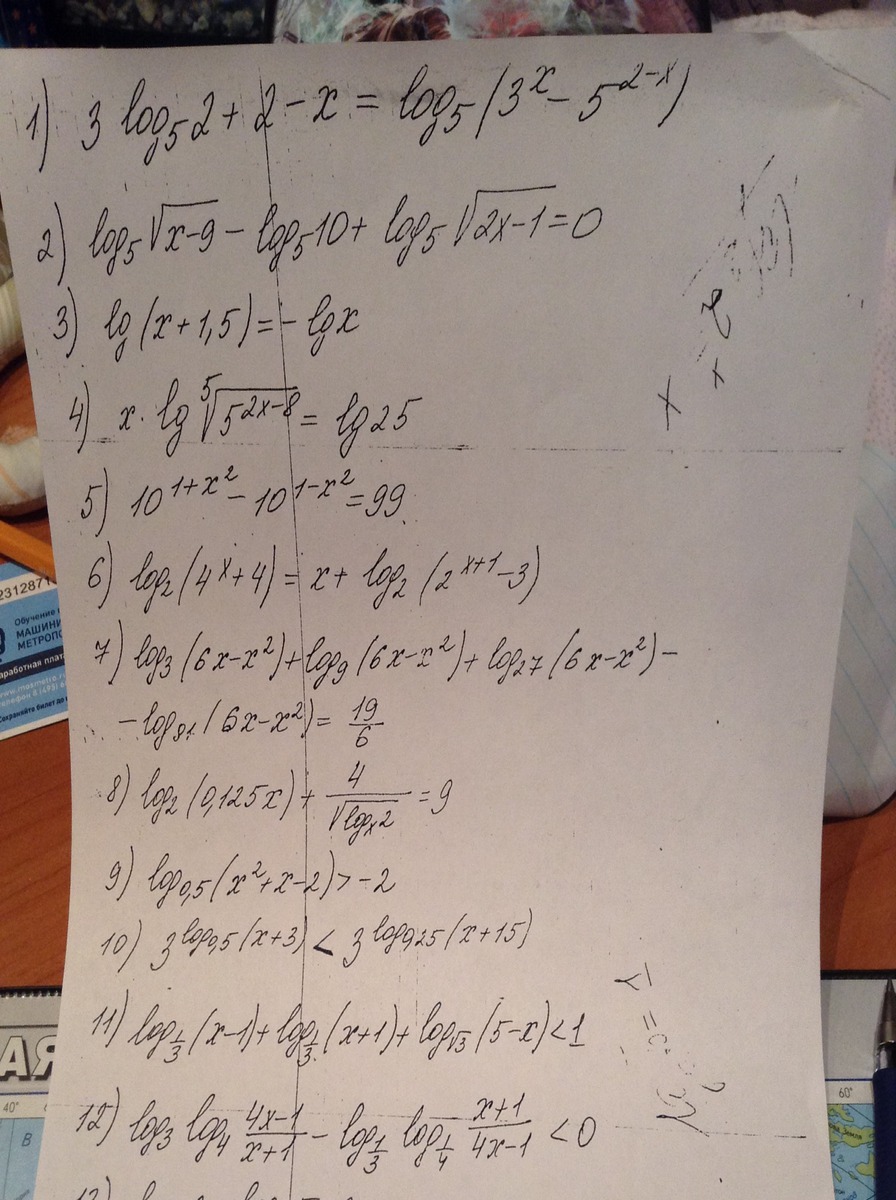 1) 3 log₅2 + 2 - x = log₅(3ˣ - 5²⁻ˣ)
2) log₅√(x-9) - log₅10 + log₅√(2x-1) = 0
3) lg(x+1,5) = -lgx
4) x · lg ⁵√(5²ˣ⁻⁸) = lg25
5) 10^(1+x²) - 10^(1-x²) = 99
6) log₂(4ˣ+4) = x + log₂(2ˣ⁺¹-3)
7) log₃(6x-x²) + log₉(6x-x²) + log₂₇(6x-x²) -
- log₈₁(6x-x²) = 19/6
8) log₂(0,125x) + 4/√(logₓ2) = 9
9) log₀,₅(x²+x-2) > -2
10) 3^(log₀,₅(x+3)) < 3^(log₀,₂₅(x+15))
11) log_(1/3)(x-1) + log_(1/3)(x+1) + log_√3(5-x) < 1
12) log₃ log₄ (4x-1)/(x+1) - log_(1/3) log_(1/4) (x+1)/(4x-1) < 0
2312871
Обучение
МАШИНИ
МЕТРОПО
www.mosmetro.ru
АЯ
40°
B
60°